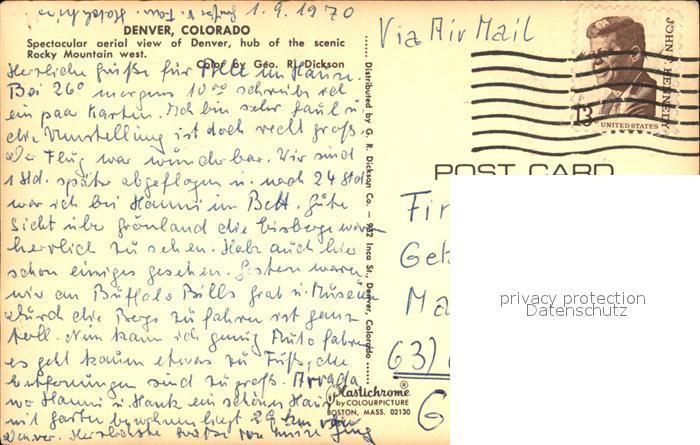 1. 9. 1970
DENVER, COLORADO
Spectacular aerial view of Denver, hub of the scenic
Rocky Mountain west.
Color by Geo. R. Dickson
Herzliche Grüße für Alle im Hause.
Bei 26° morgens 10 00 schreibe ich
ein paar Karten. Ich bin sehr faul u.
die Umstellung ist doch recht groß.
Der Flug war wunderbar. Wir sind
1 Std. später abgeflogen u. nach 24 Std
war ich bei Hanni im Bett. Gute
Sicht über Grönland die Eisberge waren
herrlich zu sehen. Habe auch hier
schon einiges gesehen. Gestern waren
wir am Buffalo Bills Grab u. Museum
durch die Berge zu fahren ist ganz
toll. Nun kann ich genug Auto fahren
es geht kaum etwas zu Fuß, die
Entfernungen sind zu groß. Arvada
wo Hanni u. Hank ein schönes Haus
mit Garten bewohnen liegt 29 km von
Denver. Herzlichste Grüße von
Distributed by G. R. Dickson Co. — 982 Inca St., Denver, Colorado
Plastichrome®
by COLOURPICTURE
BOSTON, MASS. 02130
Via Air Mail
JOHN F. KENNEDY
13c
UNITED STATES
POST CARD
63)
privacy protection
Datenschutz